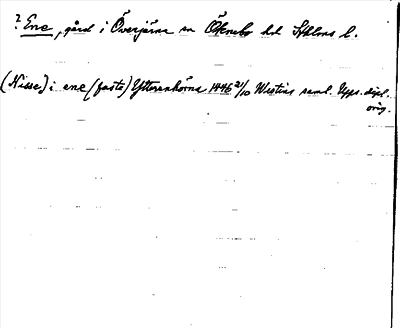 ? Ene, gård i Överjärna sn Öknebo hd Sthlms l.
(Nisse) i ene (faste) Ytterenhörna 1446 21/10 Westins saml. Upps. dipl.
orig.